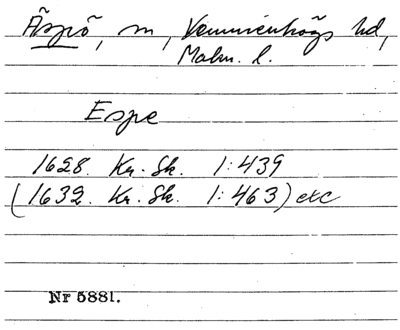 Äspö, m, Vemmenhögs hd,
Malm. l.
Espe
1628. Kr. Sk. 1:439
(1632. Kr. Sk. 1:463) etc
Nr 5881.